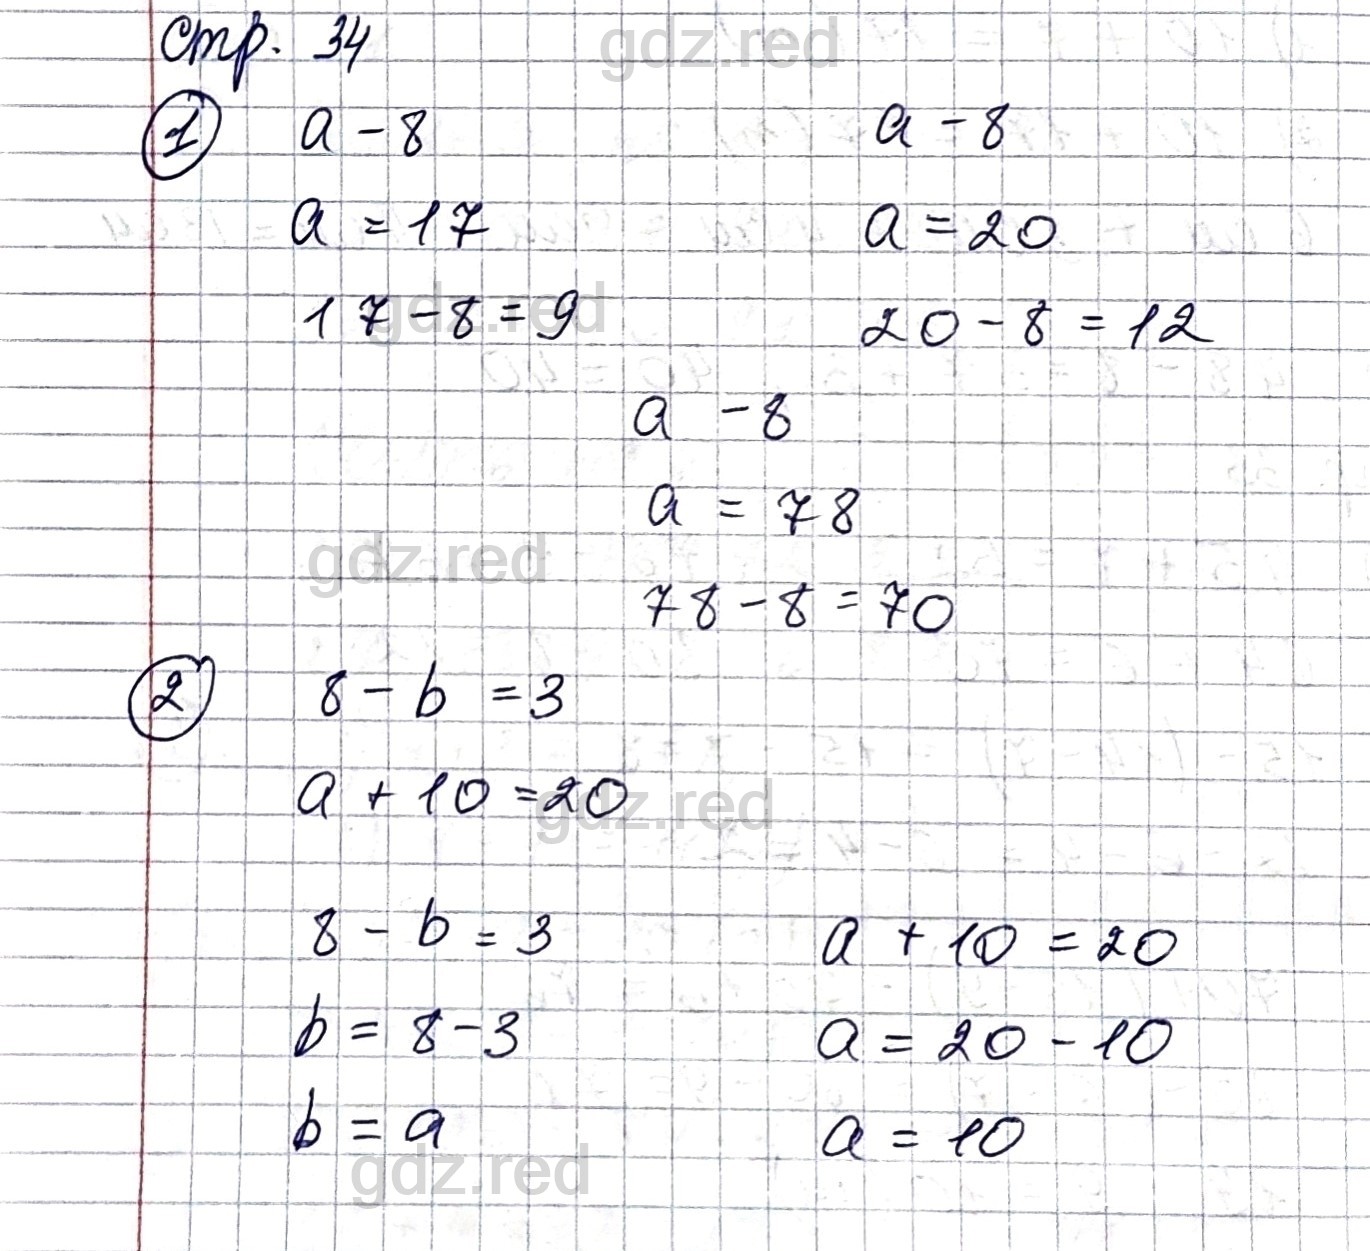 Стр. 34
gdz.red
1 a - 8 a - 8
a = 17 a = 20
17 - 8 = 9 20 - 8 = 12
gdz.red
a - 8
a = 78
gdz.red
78 - 8 = 70
2 8 - b = 3
a + 10 = 20
gdz.red
8 - b = 3 a + 10 = 20
b = 8 - 3 a = 20 - 10
b = a a = 10
gdz.red